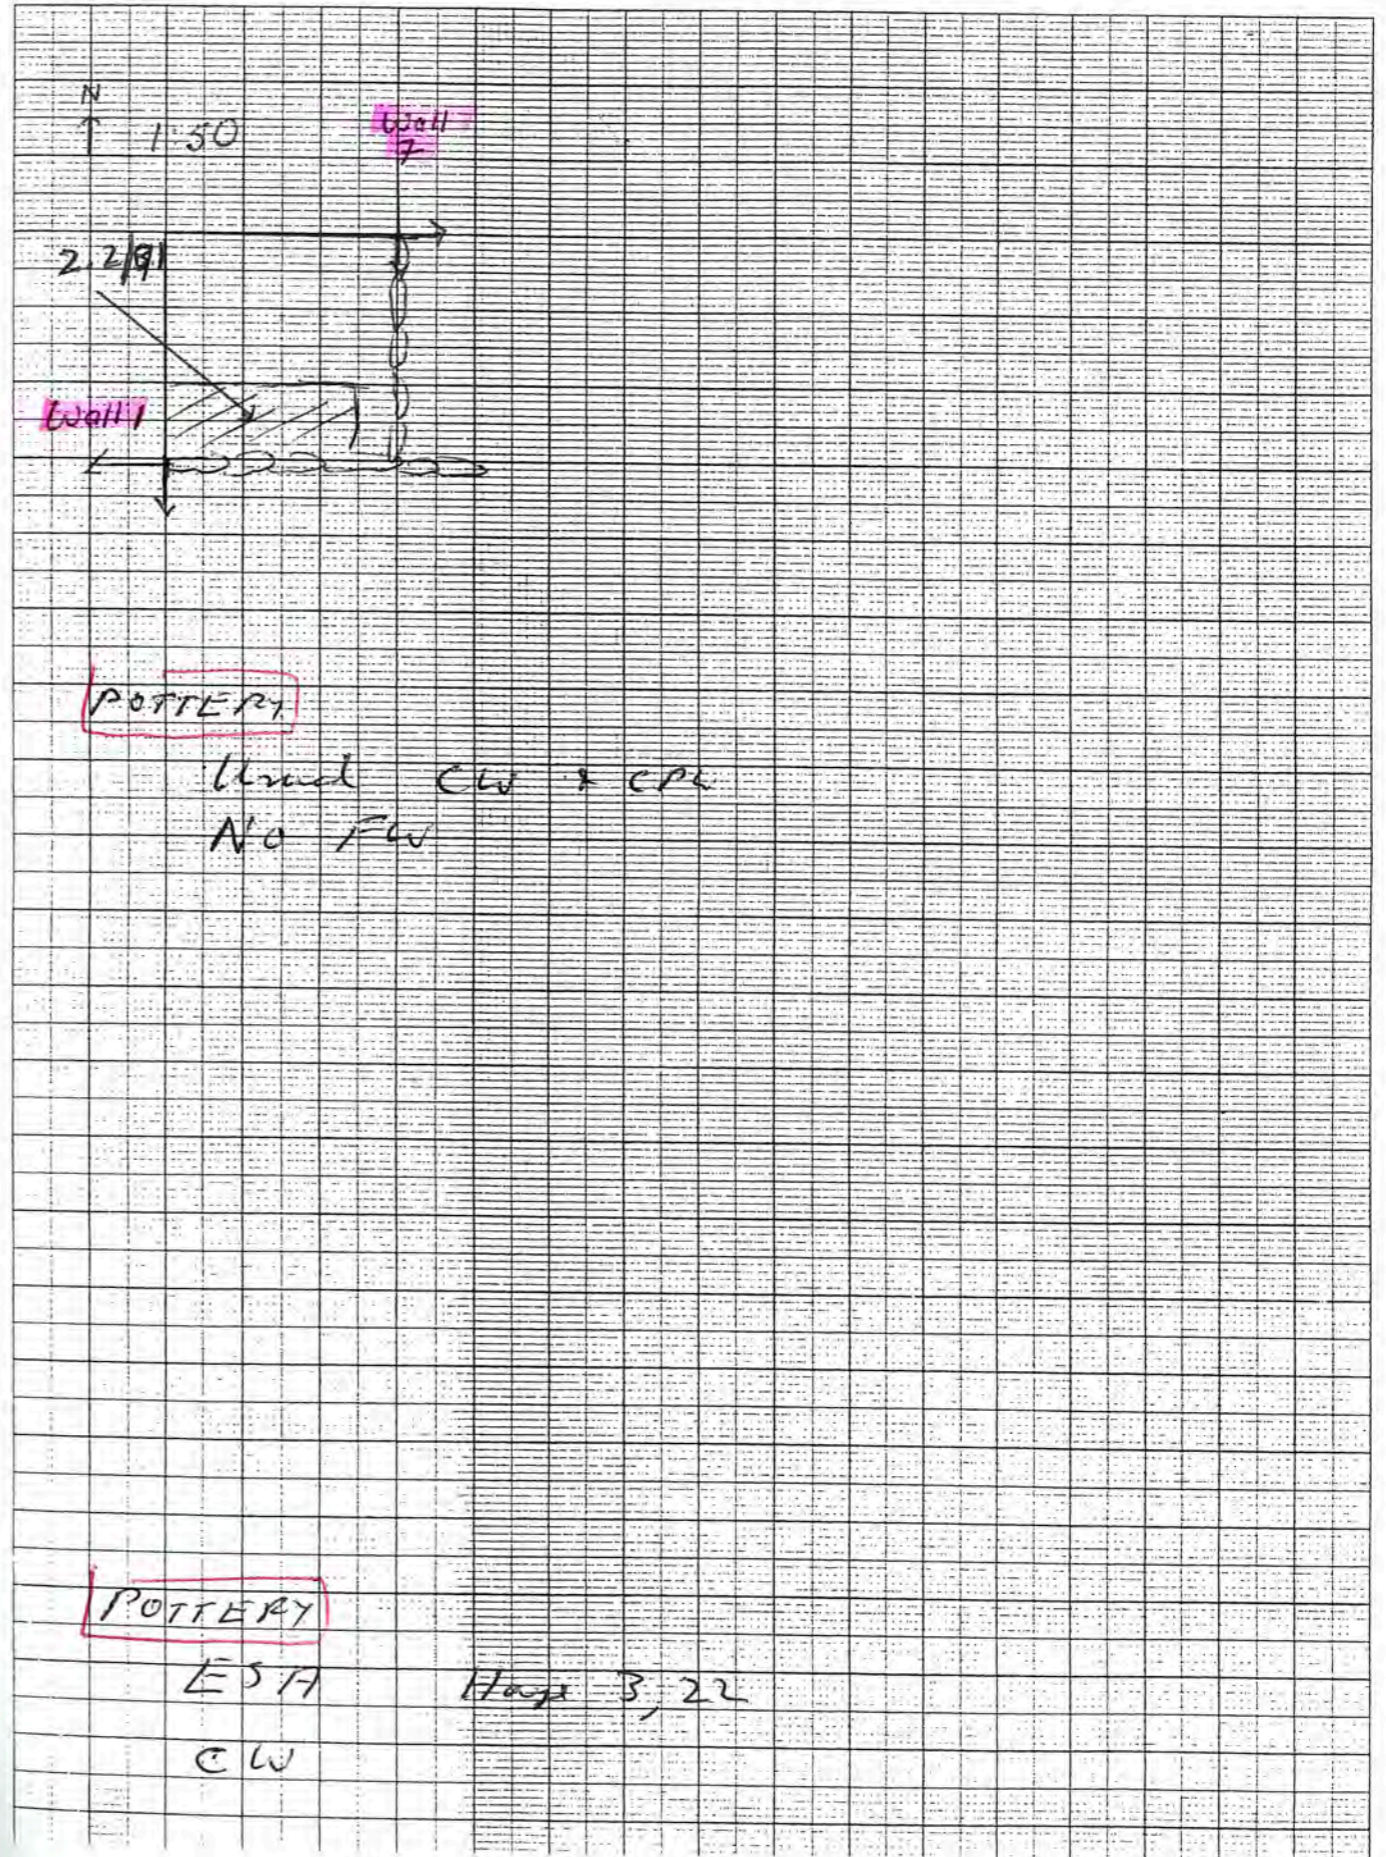 N
1:50
Wall
7
2.2/91
Wall 1
POTTERY
Usual CW + CPW
No FW
POTTERY
ESA Haye 3, 22
CW